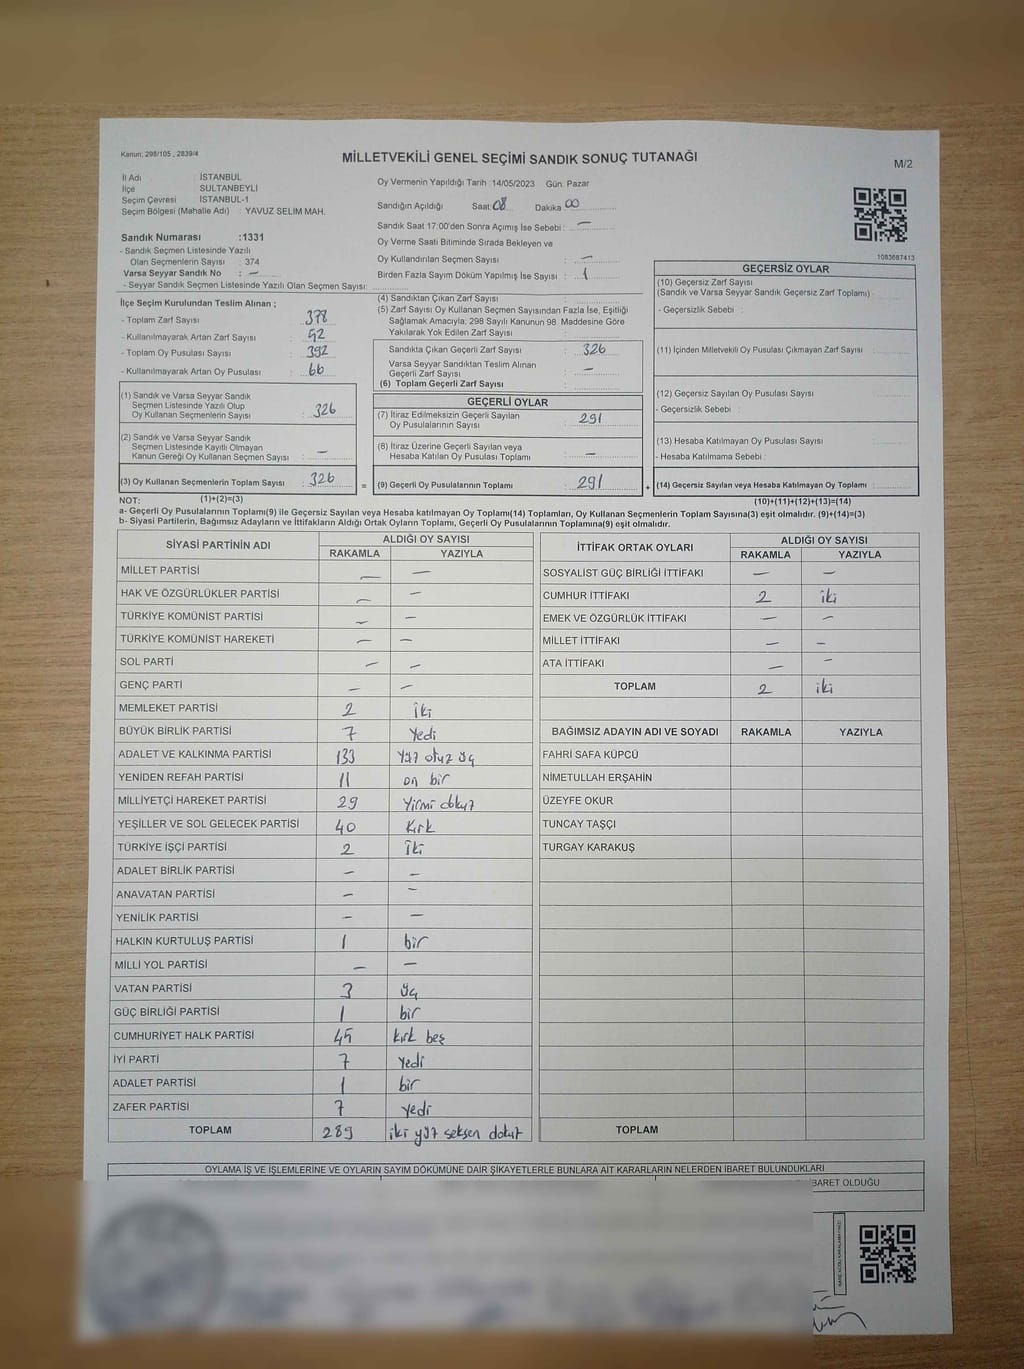 Kanun; 298/105 , 2839/4
MİLLETVEKİLİ GENEL SEÇİMİ SANDIK SONUÇ TUTANAĞI
M/2
İl Adı : İSTANBUL
İlçe : SULTANBEYLİ
Seçim Çevresi : İSTANBUL-1
Seçim Bölgesi (Mahalle Adı) : YAVUZ SELİM MAH.
Sandık Numarası :1331
- Sandık Seçmen Listesinde Yazılı
Olan Seçmenlerin Sayısı : 374
Varsa Seyyar Sandık No : –
- Seyyar Sandık Seçmen Listesinde Yazılı Olan Seçmen Sayısı:
Oy Vermenin Yapıldığı Tarih :14/05/2023 Gün: Pazar
Sandığın Açıldığı Saat: 08 Dakika 00
Sandık Saat 17:00'den Sonra Açımış İse Sebebi : –
Oy Verme Saati Bitiminde Sırada Bekleyen ve
Oy Kullandırılan Seçmen Sayısı : –
Birden Fazla Sayım Döküm Yapılmış İse Sayısı : 1
1083687413
İlçe Seçim Kurulundan Teslim Alınan ;
- Toplam Zarf Sayısı : 378
- Kullanılmayarak Artan Zarf Sayısı : 52
- Toplam Oy Pusulası Sayısı : 392
- Kullanılmayarak Artan Oy Pusulası : 66
(1) Sandık ve Varsa Seyyar Sandık
Seçmen Listesinde Yazılı Olup
Oy Kullanan Seçmenlerin Sayısı : 326
(2) Sandık ve Varsa Seyyar Sandık
Seçmen Listesinde Kayıtlı Olmayan
Kanun Gereği Oy Kullanan Seçmen Sayısı : –
(3) Oy Kullanan Seçmenlerin Toplam Sayısı : 326
(4) Sandıktan Çıkan Zarf Sayısı :
(5) Zarf Sayısı Oy Kullanan Seçmen Sayısından Fazla İse, Eşitliği
Sağlamak Amacıyla, 298 Sayılı Kanunun 98. Maddesine Göre
Yakılarak Yok Edilen Zarf Sayısı :
Sandıkta Çıkan Geçerli Zarf Sayısı : 326
Varsa Seyyar Sandıktan Teslim Alınan
Geçerli Zarf Sayısı : –
(6) Toplam Geçerli Zarf Sayısı :
GEÇERLİ OYLAR
(7) İtiraz Edilmeksizin Geçerli Sayılan
Oy Pusulalarının Sayısı : 291
(8) İtiraz Üzerine Geçerli Sayılan veya
Hesaba Katılan Oy Pusulası Toplamı : –
= (9) Geçerli Oy Pusulalarının Toplamı : 291 +
GEÇERSİZ OYLAR
(10) Geçersiz Zarf Sayısı
(Sandık ve Varsa Seyyar Sandık Geçersiz Zarf Toplamı) :
- Geçersizlik Sebebi :
(11) İçinden Milletvekili Oy Pusulası Çıkmayan Zarf Sayısı :
(12) Geçersiz Sayılan Oy Pusulası Sayısı :
- Geçersizlik Sebebi :
(13) Hesaba Katılmayan Oy Pusulası Sayısı :
- Hesaba Katılmama Sebebi :
(14) Geçersiz Sayılan veya Hesaba Katılmayan Oy Toplamı :
NOT: (1)+(2)=(3) (10)+(11)+(12)+(13)=(14)
a- Geçerli Oy Pusulalarının Toplamı(9) ile Geçersiz Sayılan veya Hesaba katılmayan Oy Toplamı(14) Toplamları, Oy Kullanan Seçmenlerin Toplam Sayısına(3) eşit olmalıdır. (9)+(14)=(3)
b- Siyasi Partilerin, Bağımsız Adayların ve İttifakların Aldığı Ortak Oyların Toplamı, Geçerli Oy Pusulalarının Toplamına(9) eşit olmalıdır.
SİYASİ PARTİNİN ADI ALDIĞI OY SAYISI
RAKAMLA YAZIYLA
MİLLET PARTİSİ – –
HAK VE ÖZGÜRLÜKLER PARTİSİ – –
TÜRKİYE KOMÜNİST PARTİSİ – –
TÜRKİYE KOMÜNİST HAREKETİ – –
SOL PARTİ – –
GENÇ PARTİ – –
MEMLEKET PARTİSİ 2 iki
BÜYÜK BİRLİK PARTİSİ 7 Yedi
ADALET VE KALKINMA PARTİSİ 133 Yüz otuz üç
YENİDEN REFAH PARTİSİ 11 on bir
MİLLİYETÇİ HAREKET PARTİSİ 29 Yirmi dokuz
YEŞİLLER VE SOL GELECEK PARTİSİ 40 Kırk
TÜRKİYE İŞÇİ PARTİSİ 2 İki
ADALET BİRLİK PARTİSİ – –
ANAVATAN PARTİSİ – –
YENİLİK PARTİSİ – –
HALKIN KURTULUŞ PARTİSİ 1 bir
MİLLİ YOL PARTİSİ – –
VATAN PARTİSİ 3 üç
GÜÇ BİRLİĞİ PARTİSİ 1 bir
CUMHURİYET HALK PARTİSİ 45 kırk beş
İYİ PARTİ 7 Yedi
ADALET PARTİSİ 1 bir
ZAFER PARTİSİ 7 yedi
TOPLAM 289 iki yüz seksen dokuz
İTTİFAK ORTAK OYLARI ALDIĞI OY SAYISI
RAKAMLA YAZIYLA
SOSYALİST GÜÇ BİRLİĞİ İTTİFAKI – –
CUMHUR İTTİFAKI 2 iki
EMEK VE ÖZGÜRLÜK İTTİFAKI – –
MİLLET İTTİFAKI – –
ATA İTTİFAKI – –
TOPLAM 2 iki
BAĞIMSIZ ADAYIN ADI VE SOYADI RAKAMLA YAZIYLA
FAHRİ SAFA KÜPCÜ
NİMETULLAH ERŞAHİN
ÜZEYFE OKUR
TUNCAY TAŞÇI
TURGAY KARAKUŞ
TOPLAM
OYLAMA İŞ VE İŞLEMLERİNE VE OYLARIN SAYIM DÖKÜMÜNE DAİR ŞİKAYETLERLE BUNLARA AİT KARARLARIN NELERDEN İBARET BULUNDUKLARI
İBARET OLDUĞU